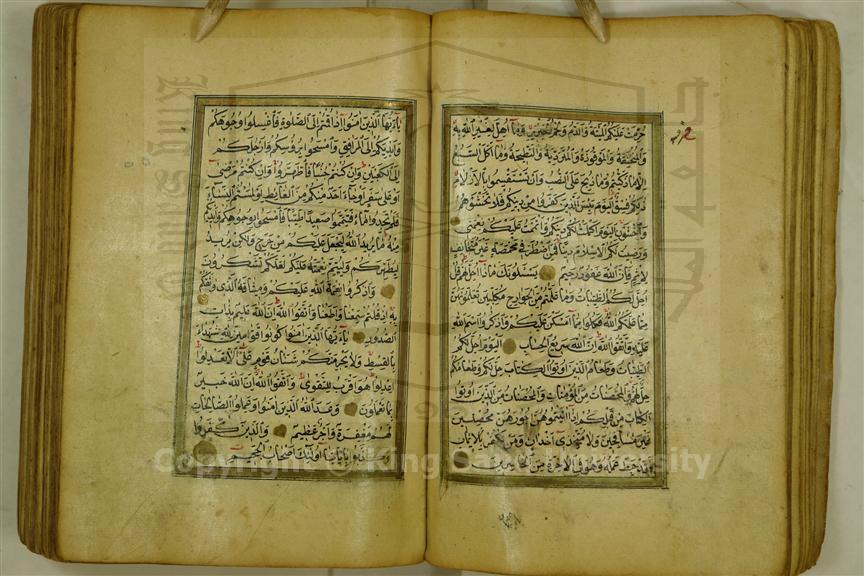 حرمت عليكم الميتة والدم ولحم الخنزير وما اهل لغير الله به
والمنخنقة والموقوذة والمتردية والنطيحة وما اكل السبع
الا ما ذكيتم وما ذبح على النصب وان تستقسموا بالازلام
ذلكم فسق اليوم يئس الذين كفروا من دينكم فلا تخشوهم
واخشون اليوم اكملت لكم دينكم واتممت عليكم نعمتي
ورضيت لكم الاسلام دينا فمن اضطر في مخمصة غير متجانف
لاثم فان الله غفور رحيم يسئلونك ماذا احل لهم قل
احل لكم الطيبات وما علمتم من الجوارح مكلبين تعلمونهن
مما علمكم الله فكلوا مما امسكن عليكم واذكروا اسم الله
عليه واتقوا الله ان الله سريع الحساب اليوم احل لكم
الطيبات وطعام الذين اوتوا الكتاب حل لكم وطعامكم
حل لهم والمحصنات من المؤمنات والمحصنات من الذين اوتوا
الكتاب من قبلكم اذا اتيتموهن اجورهن محصنين
غير مسافحين ولا متخذي اخدان ومن يكفر بالايمان
فقد حبط عمله وهو في الاخرة من الخاسرين
ياءيها الذين امنوا اذا قمتم الى الصلوة فاغسلوا وجوهكم
وايديكم الى المرافق وامسحوا برؤسكم وارجلكم
الى الكعبين وان كنتم جنبا فاطهروا وان كنتم مرضى
او على سفر او جاء احد منكم من الغائط او لمستم النساء
فلم تجدوا ماء فتيمموا صعيدا طيبا فامسحوا بوجوهكم وايديكم
منه ما يريد الله ليجعل عليكم من حرج ولكن يريد
ليطهركم وليتم نعمته عليكم لعلكم تشكرون
واذكروا نعمة الله عليكم وميثاقه الذي واثقكم
به اذ قلتم سمعنا واطعنا واتقوا الله ان الله عليم بذات
الصدور ياءيها الذين امنوا كونوا قوامين لله شهداء
بالقسط ولا يجرمنكم شنئان قوم على الا تعدلوا
اعدلوا هو اقرب للتقوى واتقوا الله ان الله خبير
بما تعملون وعد الله الذين امنوا وعملوا الصالحات
لهم مغفرة واجر عظيم والذين كفروا
وكذبوا باياتنا اولئك اصحاب الجحيم
Copyright © King Saud University